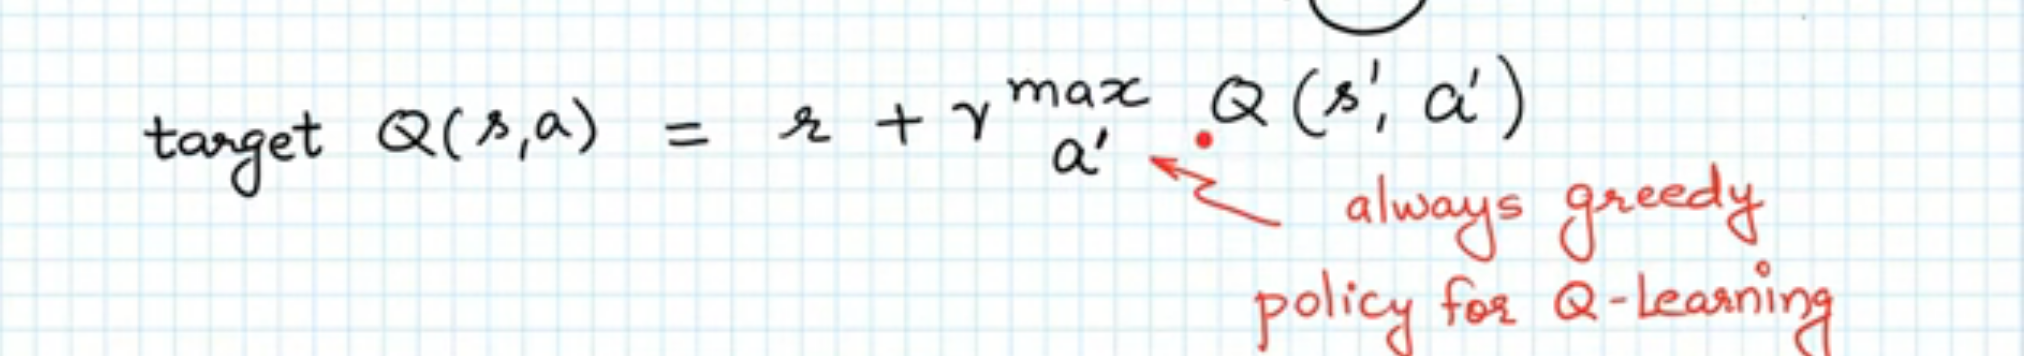 target Q(s,a) = r + γ max Q(s', a')
a'
always greedy
policy for Q-Learning